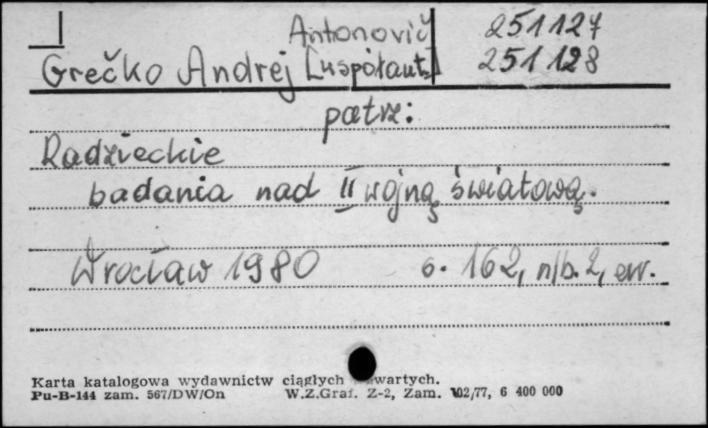 Antonovič 251127
Grečko Andrej [współaut.] 251128
patrz:
Radzieckie
badania nad II wojną światową.
Wrocław 1980 s. 162, nlb. 2, err.
Karta katalogowa wydawnictw ciągłych wartych.
Pu-B-144 zam. 567/DW/On W.Z.Graf. Z-2, Zam. 102/77, 6 400 000